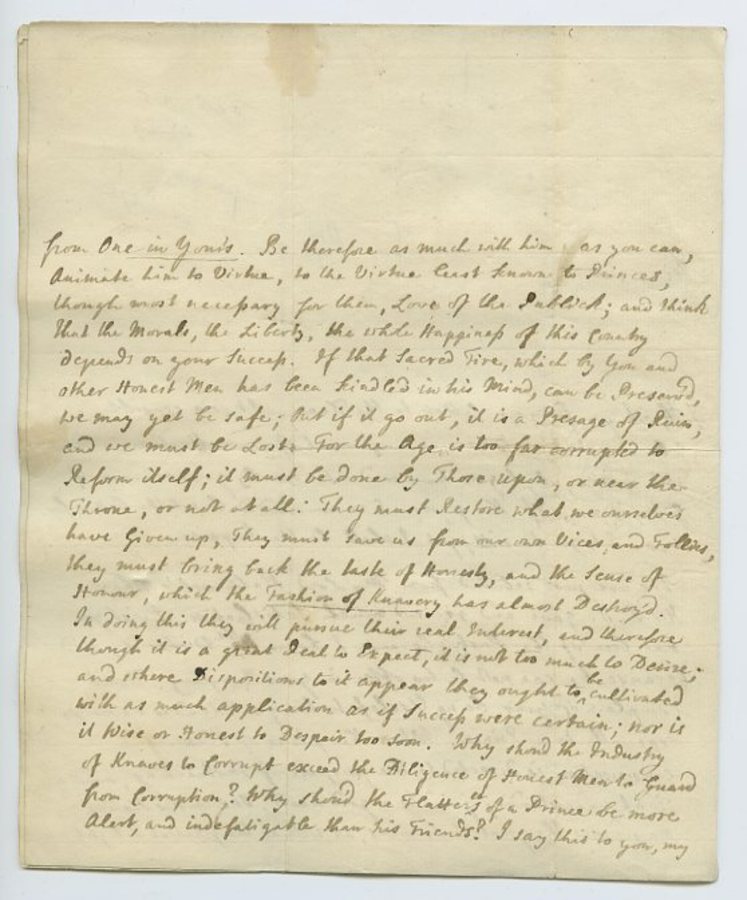 from One in Yours. Be therefore as much with him as you can,
Animate him to Virtue, to the Virtue least known to Princes,
though most necessary for them, Love of the Publick; and think
that the Morals, the Liberty, the whole Happiness of this Country
depends on your Success. If that Sacred Fire, which by You and
other Honest Men has been kindled in his Mind, can be Preserv'd,
we may yet be safe; But if it go out, it is a Presage of Ruin,
and we must be Lost. For the Age is too far corrupted to
Reform itself; it must be done by Those upon, or near the
Throne, or not at all: They must Restore what we ourselves
have Given up, They must save us from our own Vices, and Follies,
they must bring back the taste of Honesty, and the Sense of
Honour, which the Fashion of Knavery has almost Destroy'd.
In doing this they will pursue their real Interest, and therefore
though it is a great Deal to Expect, it is not too much to Desire;
and where Dispositions to it appear they ought to be cultivated
with as much application as if Success were certain; nor is
it Wise or Honest to Despair too soon. Why shou'd the Industry
of Knaves to Corrupt exceed the Diligence of Honest Men to Guard
from Corruption? Why shou'd the Flatterers of a Prince be more
Alert, and indefatigable than his Friends? I say this to you, my